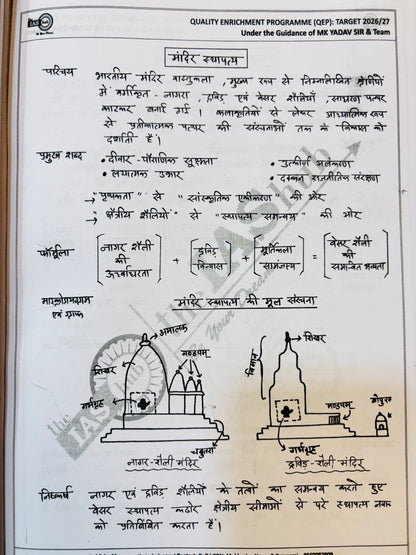 QUALITY ENRICHMENT PROGRAMME (QEP): TARGET 2026/27
Under the Guidance of MK YADAV SIR & Team
मंदिर स्थापत्य
परिचय
भारतीय मंदिर वास्तुकला, मुख्य रूप से निम्नलिखित श्रेणियों
में वर्गीकृत - नागर, द्रविड़ एवं वेसर शैलियाँ, साधारण पत्थर
काटकर बनाई गई। कलाकृतियों से लेकर आध्यात्मिक रूप
से प्रतीकात्मक पत्थर की संरचनाओं तक के विकास को
दर्शाती हैं।
प्रमुख शब्द
• दीवार-पौराणिक सूक्ष्मता
• उत्कीर्ण अलंकरण
• लयात्मक उभार
राजनीतिक संरक्षण
→ "पृथकता" से "सांस्कृतिक एकीकरण" की ओर
→ "क्षेत्रीय शैलियों" से "स्थापत्य समन्वय" की ओर
फॉर्मूला
[नागर शैली की ऊर्ध्वाधरता] + [द्रविड़ विन्यास] + [मूर्तिकला सामंजस्य] = [वेसर शैली की समन्वित भव्यता]
एवं ग्राफ
मंदिर स्थापत्य की मूल संरचना
आमलक
शिखर
मण्डपम्
गर्भगृह
चबूतरा
नागर-शैली मंदिर
शिखर
विमान
मण्डपम्
गोपुरम
गर्भगृह
द्रविड़-शैली मंदिर
the IAS hub
Be Your Dream
निष्कर्ष
नागर एवं द्रविड़ शैलियों के तत्वों का समन्वय करते हुए
वेसर स्थापत्य कठोर क्षेत्रीय सीमाओं से परे स्थापत्य
को प्रतिबिंबित करता है।